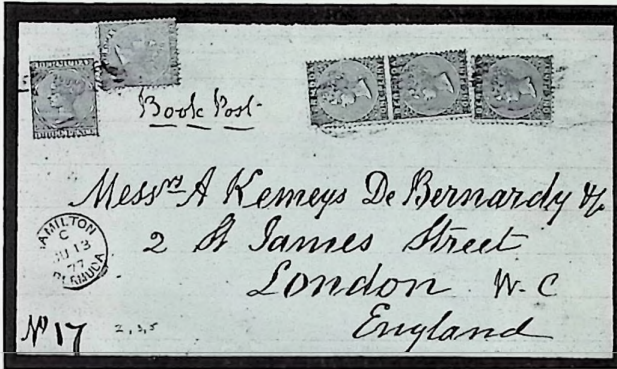 BERMUDA
Book Post
Messrs A Kemeys De Bernardy &
2 St James Street
London W.C
England
HAMILTON
C
JU 13
77
BERMUDA
No 17
2,3,5